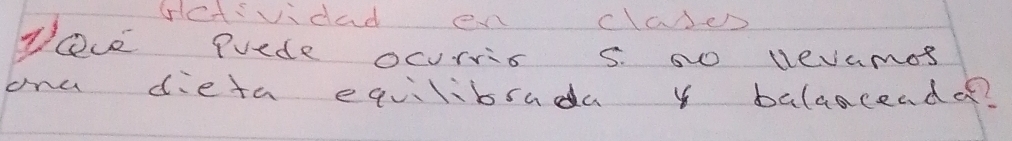 Actividad en clases
1) Qué Puede ocurrir si no llevamos
una dieta equilibrada y balanceada?